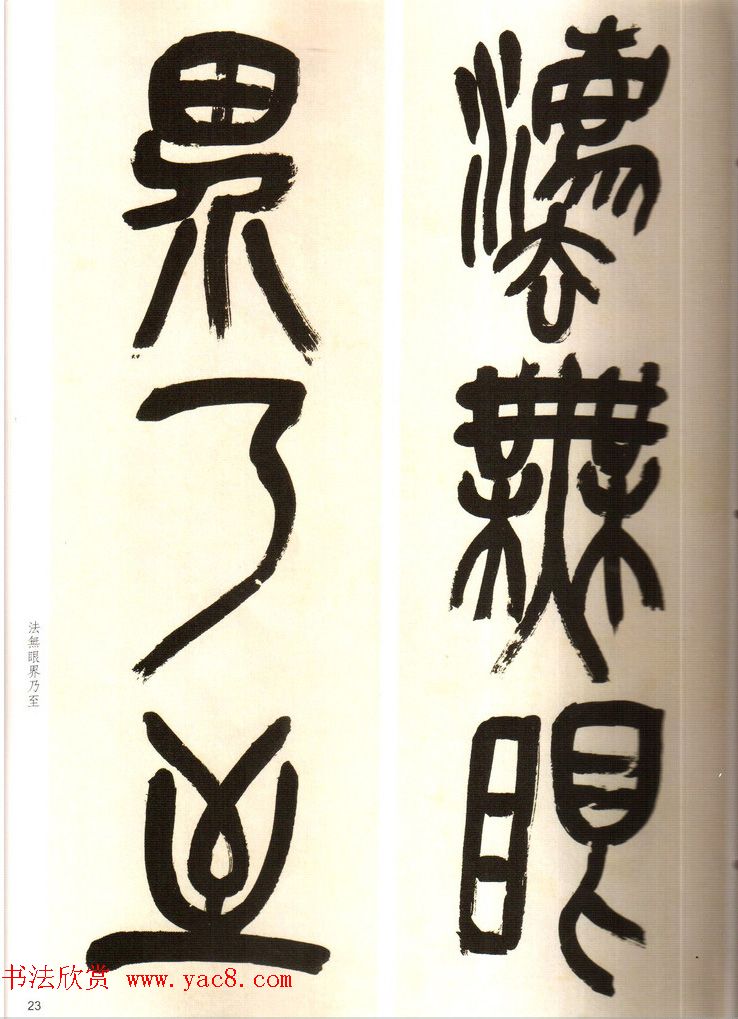 灋無眼
界乃至
法無眼界乃至
书法欣赏 www.yac8.com
23